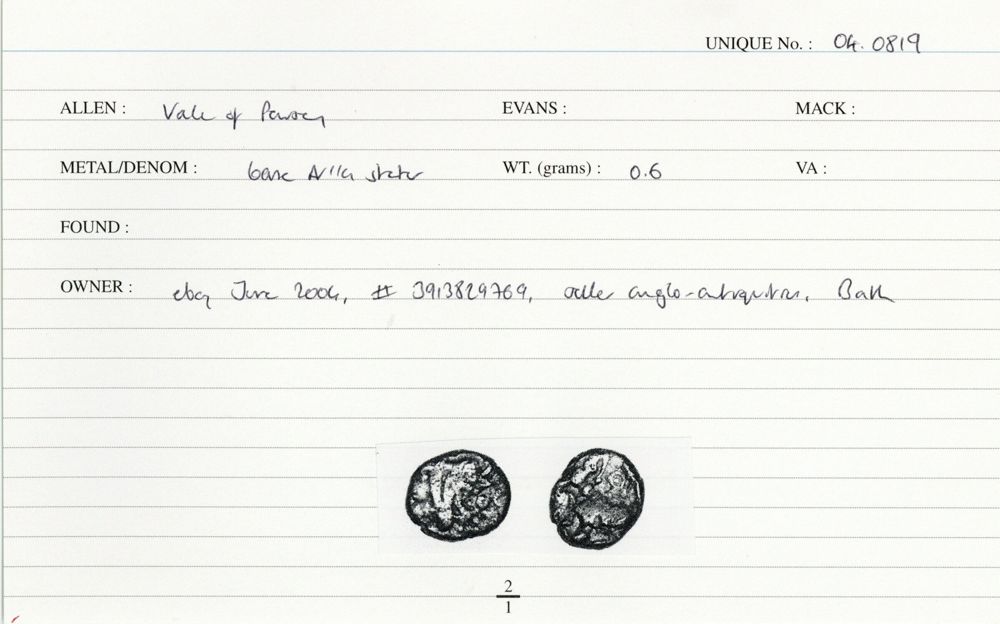 UNIQUE No. : 04.0819
ALLEN : Vale of Pewsey EVANS : MACK :
METAL/DENOM : base A/1/4 stater WT. (grams) : 0.6 VA :
FOUND :
OWNER : ebay June 2004, # 3913829769, seller anglo-antiquities, Bath
2
1